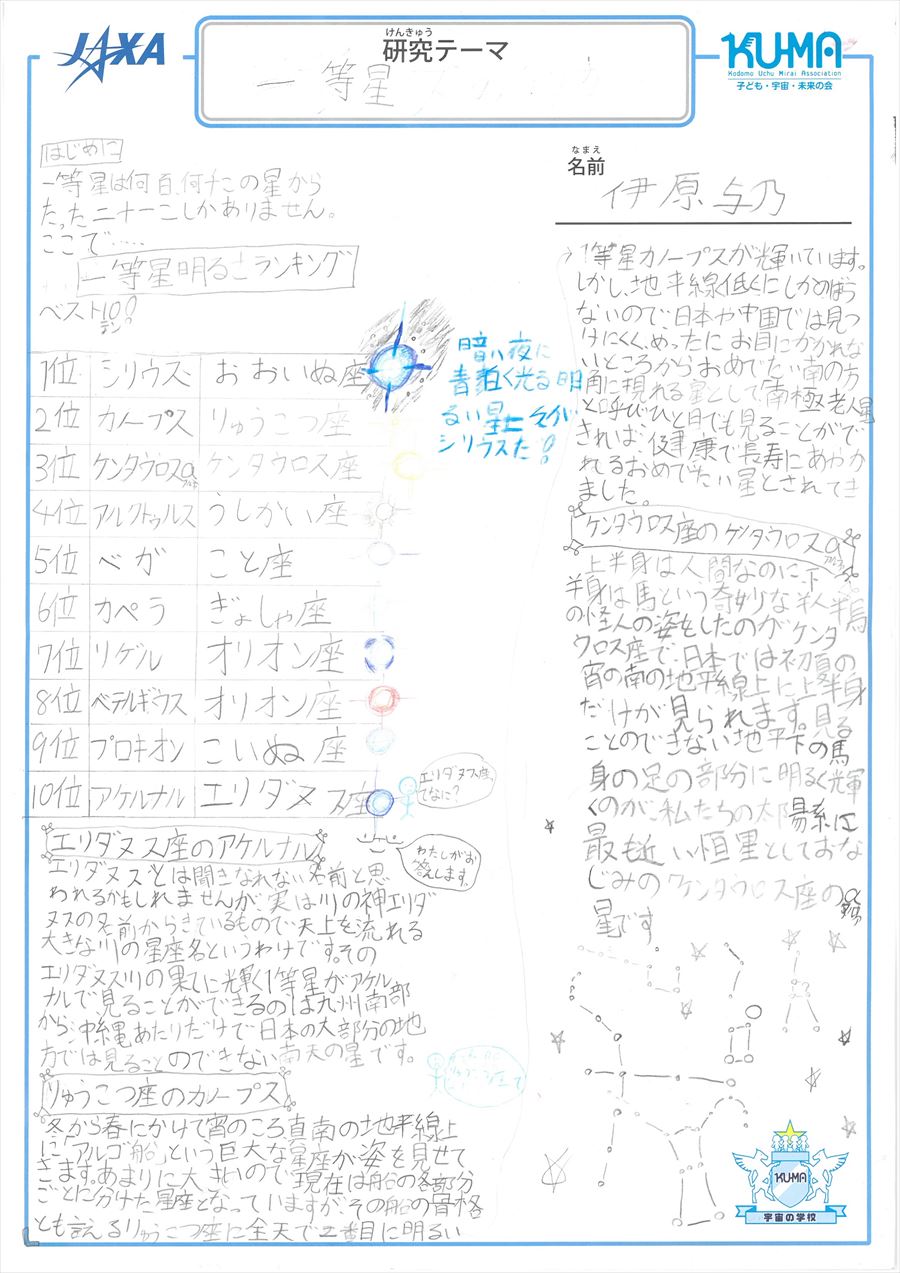 JAXA
けんきゅう
研究テーマ
一等星
KU-MA
Kodomo Uchu Mirai Association
子ども・宇宙・未来の会
なまえ
名前
伊原与乃
はじめに
一等星は何百、何千この星から
たった二十一こしかありません。
ここで.....
一等星明るさランキング
ベスト10!
テン
1位 シリウス おおいぬ座
2位 カノープス りゅうこつ座
3位 ケンタウロスα ケンタウロス座
アルファ
4位 アルクトゥルス うしかい座
5位 ベガ こと座
6位 カペラ ぎょしゃ座
7位 リゲル オリオン座
8位 ベテルギウス オリオン座
9位 プロキオン こいぬ座
10位 アケルナル エリダヌス座
暗い夜に
青白く光る明
るい星
シリウスだ!
エリダヌス座
てなに?
わたしがお
答えします。
エリダヌス座のアケルナル
エリダヌスとは聞きなれない名前と思
われるかもしれませんが、実は川の神エリダ
ヌスの名前からきているもので、天上を流れる
大きな川の星座名というわけです。その
エリダヌス川の果てに光輝く1等星がアケル
ナルで見ることができるのは九州南部
から沖縄あたりだけで日本の大部分の地
方では見ることのできない南天の星です。
りゅうこつ座のカノープス
冬から春にかけて宵のころ真南の地平線上
に「アルゴ船」という巨大な星座が姿を見せて
きます。あまりに大きいので、現在は船の各部分
ごとに分けた星座となっていますが、その船の骨格
とも言えるりゅうこつ座に全天で二番目に明るい
1等星カノープスが輝いています。
しかし、地平線低くにしかのぼら
ないので、日本や中国では見つ
けにくく、めったにお目にかかれな
いところからおめでたい南の方
角に現れる星として「南極老人星」
と呼びひと目でも見ることがで
きれば、健康で長寿にあやか
れるおめでたい星とされてき
ました。
ケンタウロス座のケンタウロスα
アルファ
上半身は人間なのに、下
半身は馬という奇妙な半人半馬
の怪人の姿をしたのがケンタ
ウロス座で、日本では初夏の
宵の南の地平線上に上半身
だけが見られます。見る
ことのできない地平下の馬
身の足の部分に明るく輝
くのが、私たちの太陽系に
最も近い恒星としておな
じみのケンタウロス座のα
星です
KU-MA
宇宙の学校